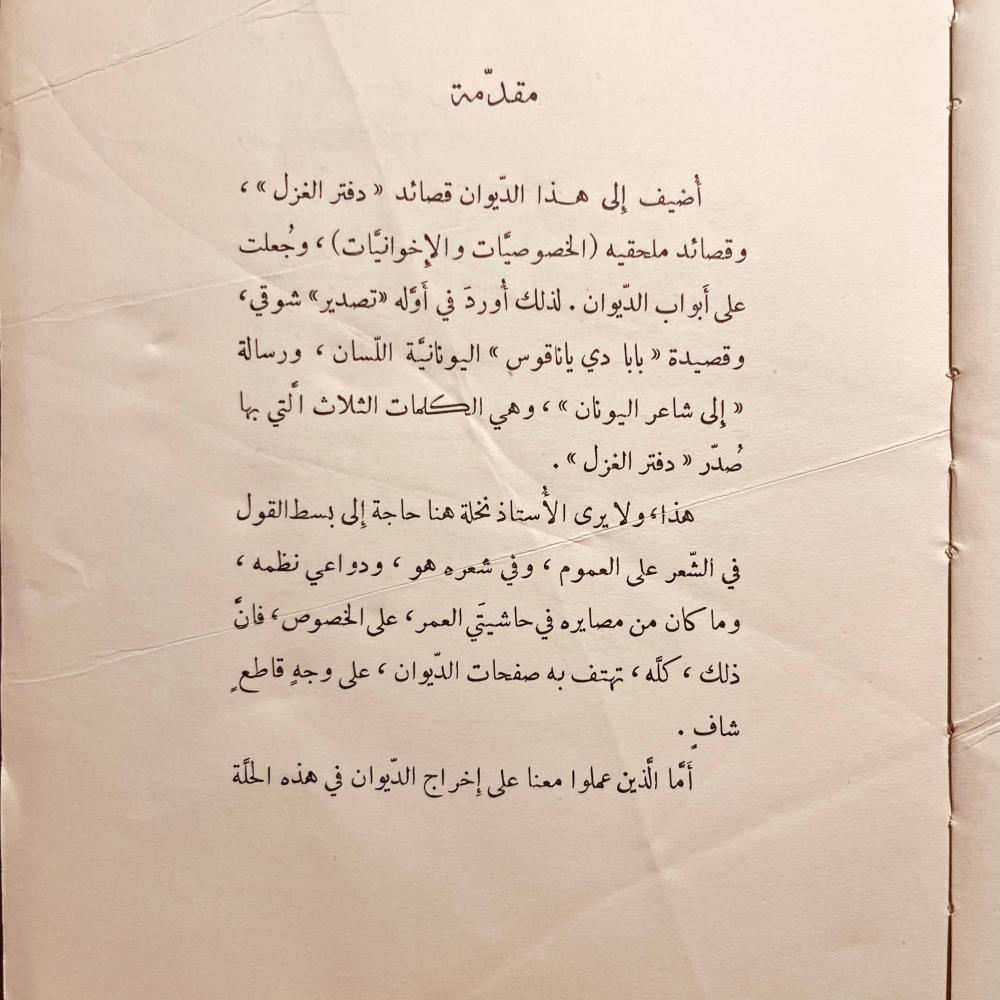 مقدّمة
أُضيف إِلى هـذا الدّيوان قصائد « دفتر الغزل » ،
وقصائد ملحقيه (الخصوصيَّات والإِخوانيَّات) ، وجُعلت
على أَبواب الدّيوان . لذلك أُوردَ في أَوَّله «تصدير» شوقي،
وقصيدة « بابا دي ياناقوس » اليونانيَّة اللّسان ، ورسالة
« إِلى شاعر اليونان » ، وهي الكلمات الثلاث الَّتي بها
صُدّر « دفتر الغزل » .
هذا، ولا يرى الأُستاذ نخلة هنا حاجة إِلى بسط القول
في الشّعر على العموم ، وفي شعره هو ، ودواعي نظمه ،
وما كان من مصايره في حاشيتَي العمر ، على الخصوص ، فانَّ
ذلك ، كلَّه ، تهتف به صفحات الدّيوان ، على وجهٍ قاطعٍ
شافٍ .
أَمَّا الَّذين عملوا معنا على إِخراج الدّيوان في هذه الحلَّة